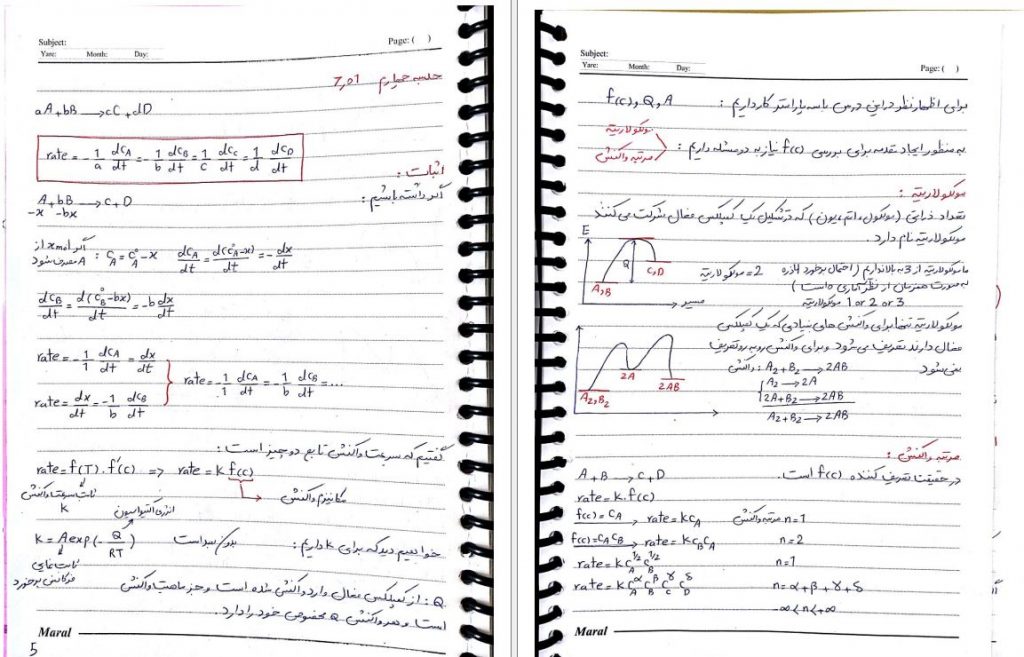 Subject:
Yare: Month: Day:
Page: ( )
جلسه چهارم 7,01
aA+bB → cC+dD
rate = -1/a dC_A/dt = -1/b dC_B/dt = 1/c dC_C/dt = 1/d dC_D/dt
اثبات:
اگر داشته باشیم:
A+bB → C+D
-x -bx
اگر x mol از A مصرف شود : C_A = C°_A - x dC_A/dt = d(C°_A-x)/dt = -dx/dt
dC_B/dt = d(C°_B-bx)/dt = -b dx/dt
rate = -1/1 dC_A/dt = dx/dt
rate = dx/dt = -1/b dC_B/dt
rate = -1/1 dC_A/dt = -1/b dC_B/dt = ...
گفتیم که سرعت واکنش تابع دو چیز است:
rate = f(T).f'(c) => rate = k f(c)
ثابت سرعت واکنش k
مکانیزم واکنش
انرژی اکتیواسیون
خواهیم دید که برای k داریم:
k = A exp(-Q/RT)
بدون بعد است
ثابت نمایی
فرکانس برخورد
Q: از کمپلکس فعال وارد واکنش شده است و جز ماهیت واکنش
است و هر واکنش Q مخصوص خود را دارد.
Maral
5
Subject:
Yare: Month: Day:
Page: ( )
برای اظهار نظر در این درس با سه پارامتر کار داریم: f(c), Q, A
به منظور ایجاد مقدمه برای بررسی f(c) نیاز به دو مسئله داریم:
مولکولاریته
مرتبه واکنش
مولکولاریته:
تعداد ذراتی (مولکول، اتم، یون) که در تشکیل یک کمپلکس فعال شرکت می کنند
مولکولاریته نام دارد.
E
Q
A,B
C,D
مسیر
ما مولکولاریته از 3 به بالا نداریم (احتمال برخورد 4 ذره
به صورت همزمان از نظر آماری 0 است)
مولکولاریته = 2
مولکولاریته 1 or 2 or 3
مولکولاریته تنها برای واکنش های بنیادی که یک کمپلکس
فعال دارند تعریف می شود و برای واکنش روبه رو تعریف
نمی شود
A2,B2
2A
2AB
واکنش: A2+B2 → 2AB
A2 → 2A
2A+B2 → 2AB
A2+B2 → 2AB
مرتبه واکنش:
در حقیقت تعریف کننده f(c) است.
A+B → C+D
rate = k.f(c)
f(c)=C_A → rate = kC_A مرتبه واکنش n=1
f(c)=C_A C_B → rate = kC_B C_A n=2
rate = kC_A^1/2 C_B^1/2 n=1
rate = kC_A^α C_B^β C_C^γ C_D^δ n=α+β+γ+δ
-∞<n<+∞
Maral